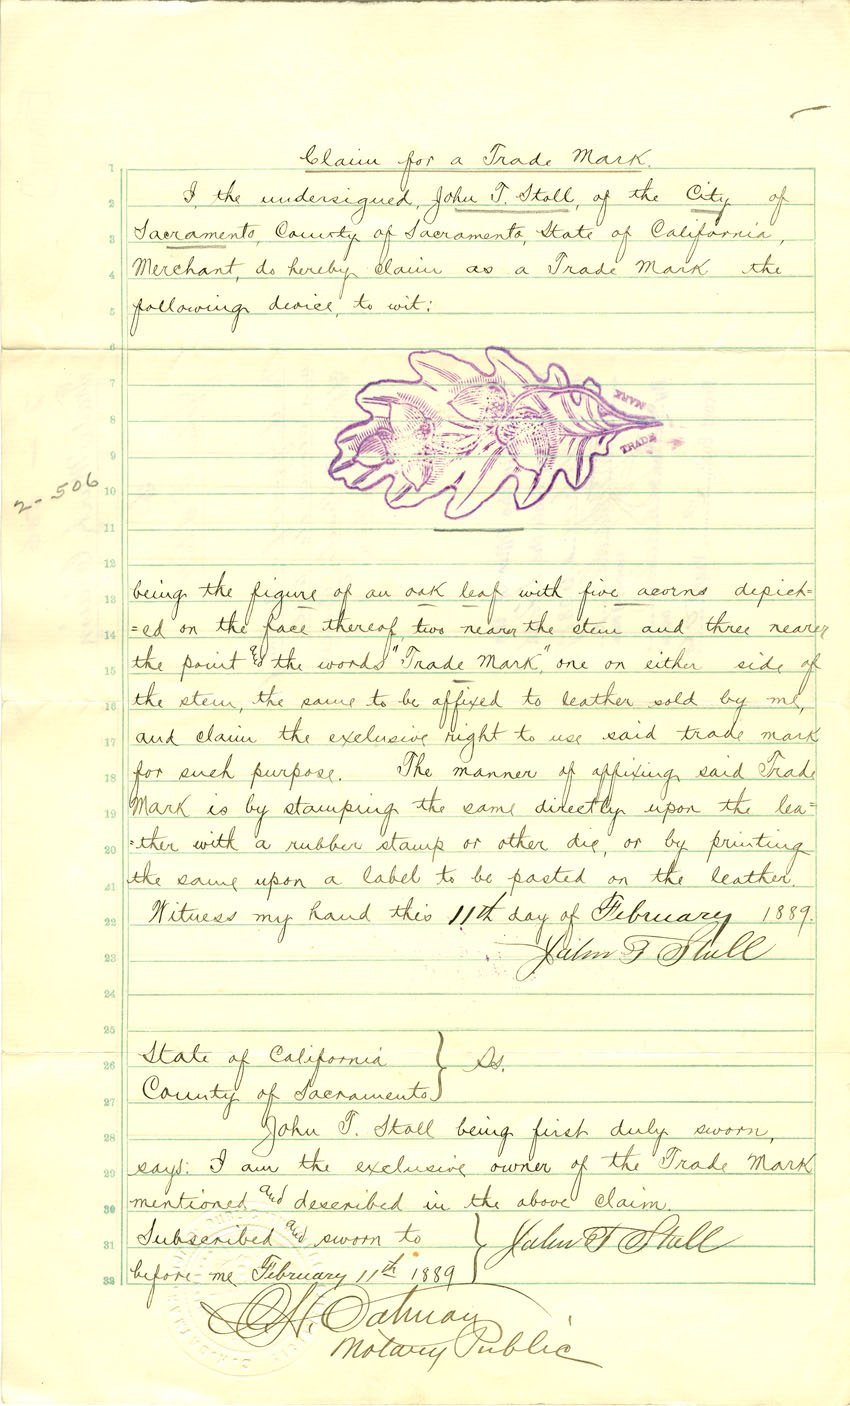 Claim for a Trade Mark.
I, the undersigned, John T. Stoll, of the City of
Sacramento County of Sacramento, State of California,
Merchant, do hereby claim as a Trade Mark the
following device, to wit:
MARK
TRADE
2-506
being the figure of an oak leaf with five acorns depict=
=ed on the face thereof, two nearer the stem and three nearer
the point and the words "Trade Mark," one on either side of
the stem, the same to be affixed to leather sold by me,
and claim the exclusive right to use said trade mark
for such purpose. The manner of affixing said Trade
Mark is by stamping the same directly upon the lea=
=ther with a rubber stamp or other die, or by printing
the same upon a label to be pasted on the leather.
Witness my hand this 11th day of February 1889.
John T Stoll
State of California } Ss.
County of Sacramento
John T. Stoll being first duly sworn,
says: I am the exclusive owner of the Trade Mark
mentioned and described in the above claim.
Subscribed and sworn to } John T Stoll
before me February 11th 1889
Notary Public
1
2
3
4
5
6
7
8
9
10
11
12
13
14
15
16
17
18
19
20
21
22
23
24
25
26
27
28
29
30
31
32